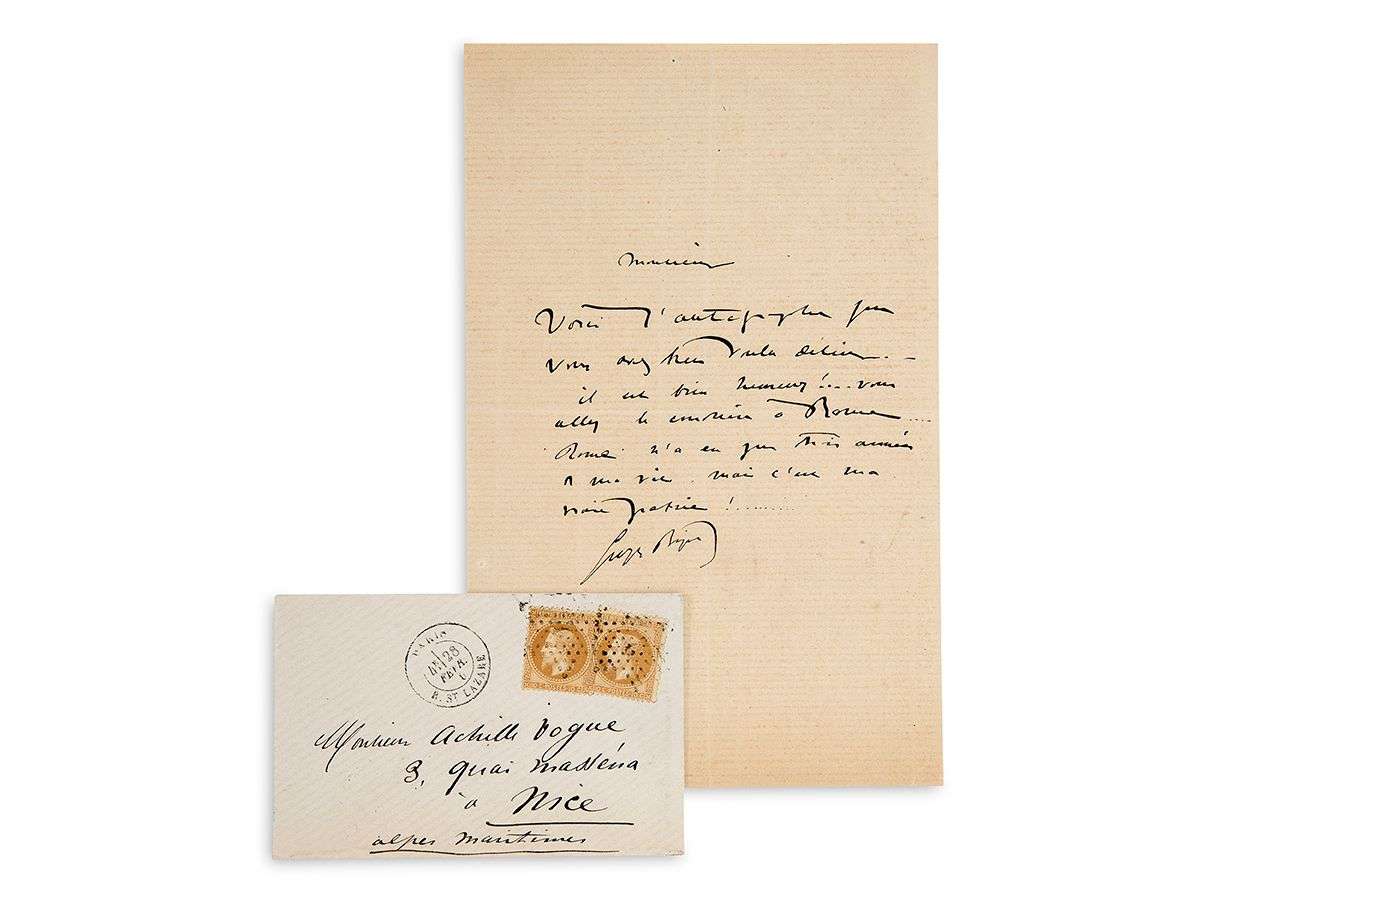 Monsieur
Voici l'autographe que
vous avez bien voulu désirer. –
il est bien heureux!....vous
allez le conduire à Rome.....
Rome n'a eu que trois années
de ma vie. mais c'est ma
vraie patrie!.........
Georges Bizet
PARIS
28
FEVR.
R. ST LAZARE
Monsieur Achille Vogue
3, quai Masséna
à Nice
alpes maritimes